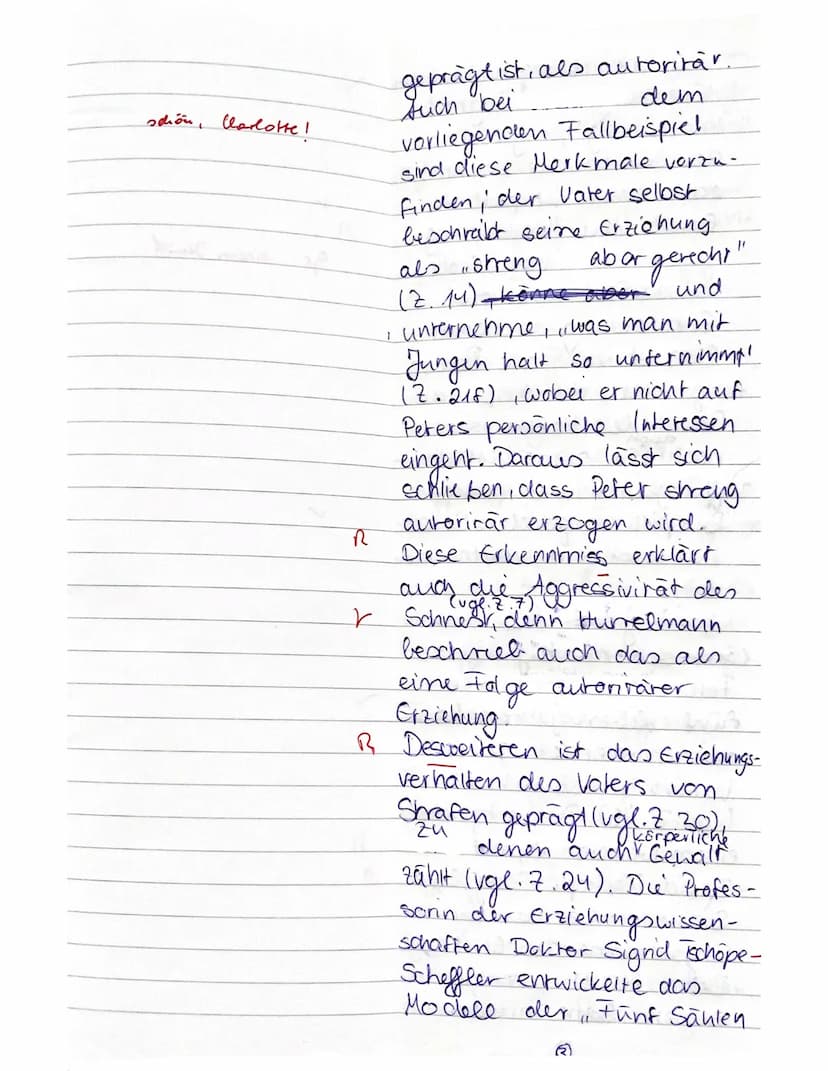 geprägt ist, als autoritär.
Auch bei dem
schön, Charlotte!
vorliegenden Fallbeispiel
sind diese Merkmale vorzu-
finden; der Vater selbst
beschreibt seine Erziehung
als „streng aber gerecht"
(Z. 14) , könne aber und
unternehme, „was man mit
Jungen halt so unternimmt"
(Z. 21f), wobei er nicht auf
Peters persönliche Interessen
eingeht. Daraus lässt sich
schließen, dass Peter streng
autoritär erzogen wird.
R
Diese Erkenntniss erklärt
auch die Aggressivität des
(vgl. Z. 7)
r
denn Hurrelmann
beschrieb auch das als
eine Folge autoritärer
Erziehung.
R
Desweiteren ist das Erziehungs-
verhalten des Vaters von
Strafen geprägt (vgl. Z 30),
zu körperliche
denen auch Gewalt
zählt (vgl. Z. 24). Die Profes-
sorin der Erziehungswissen-
schaften Doktor Sigrid Tschöpe-
Scheffler entwickelte das
Modell der „Fünf Säulen
(2)